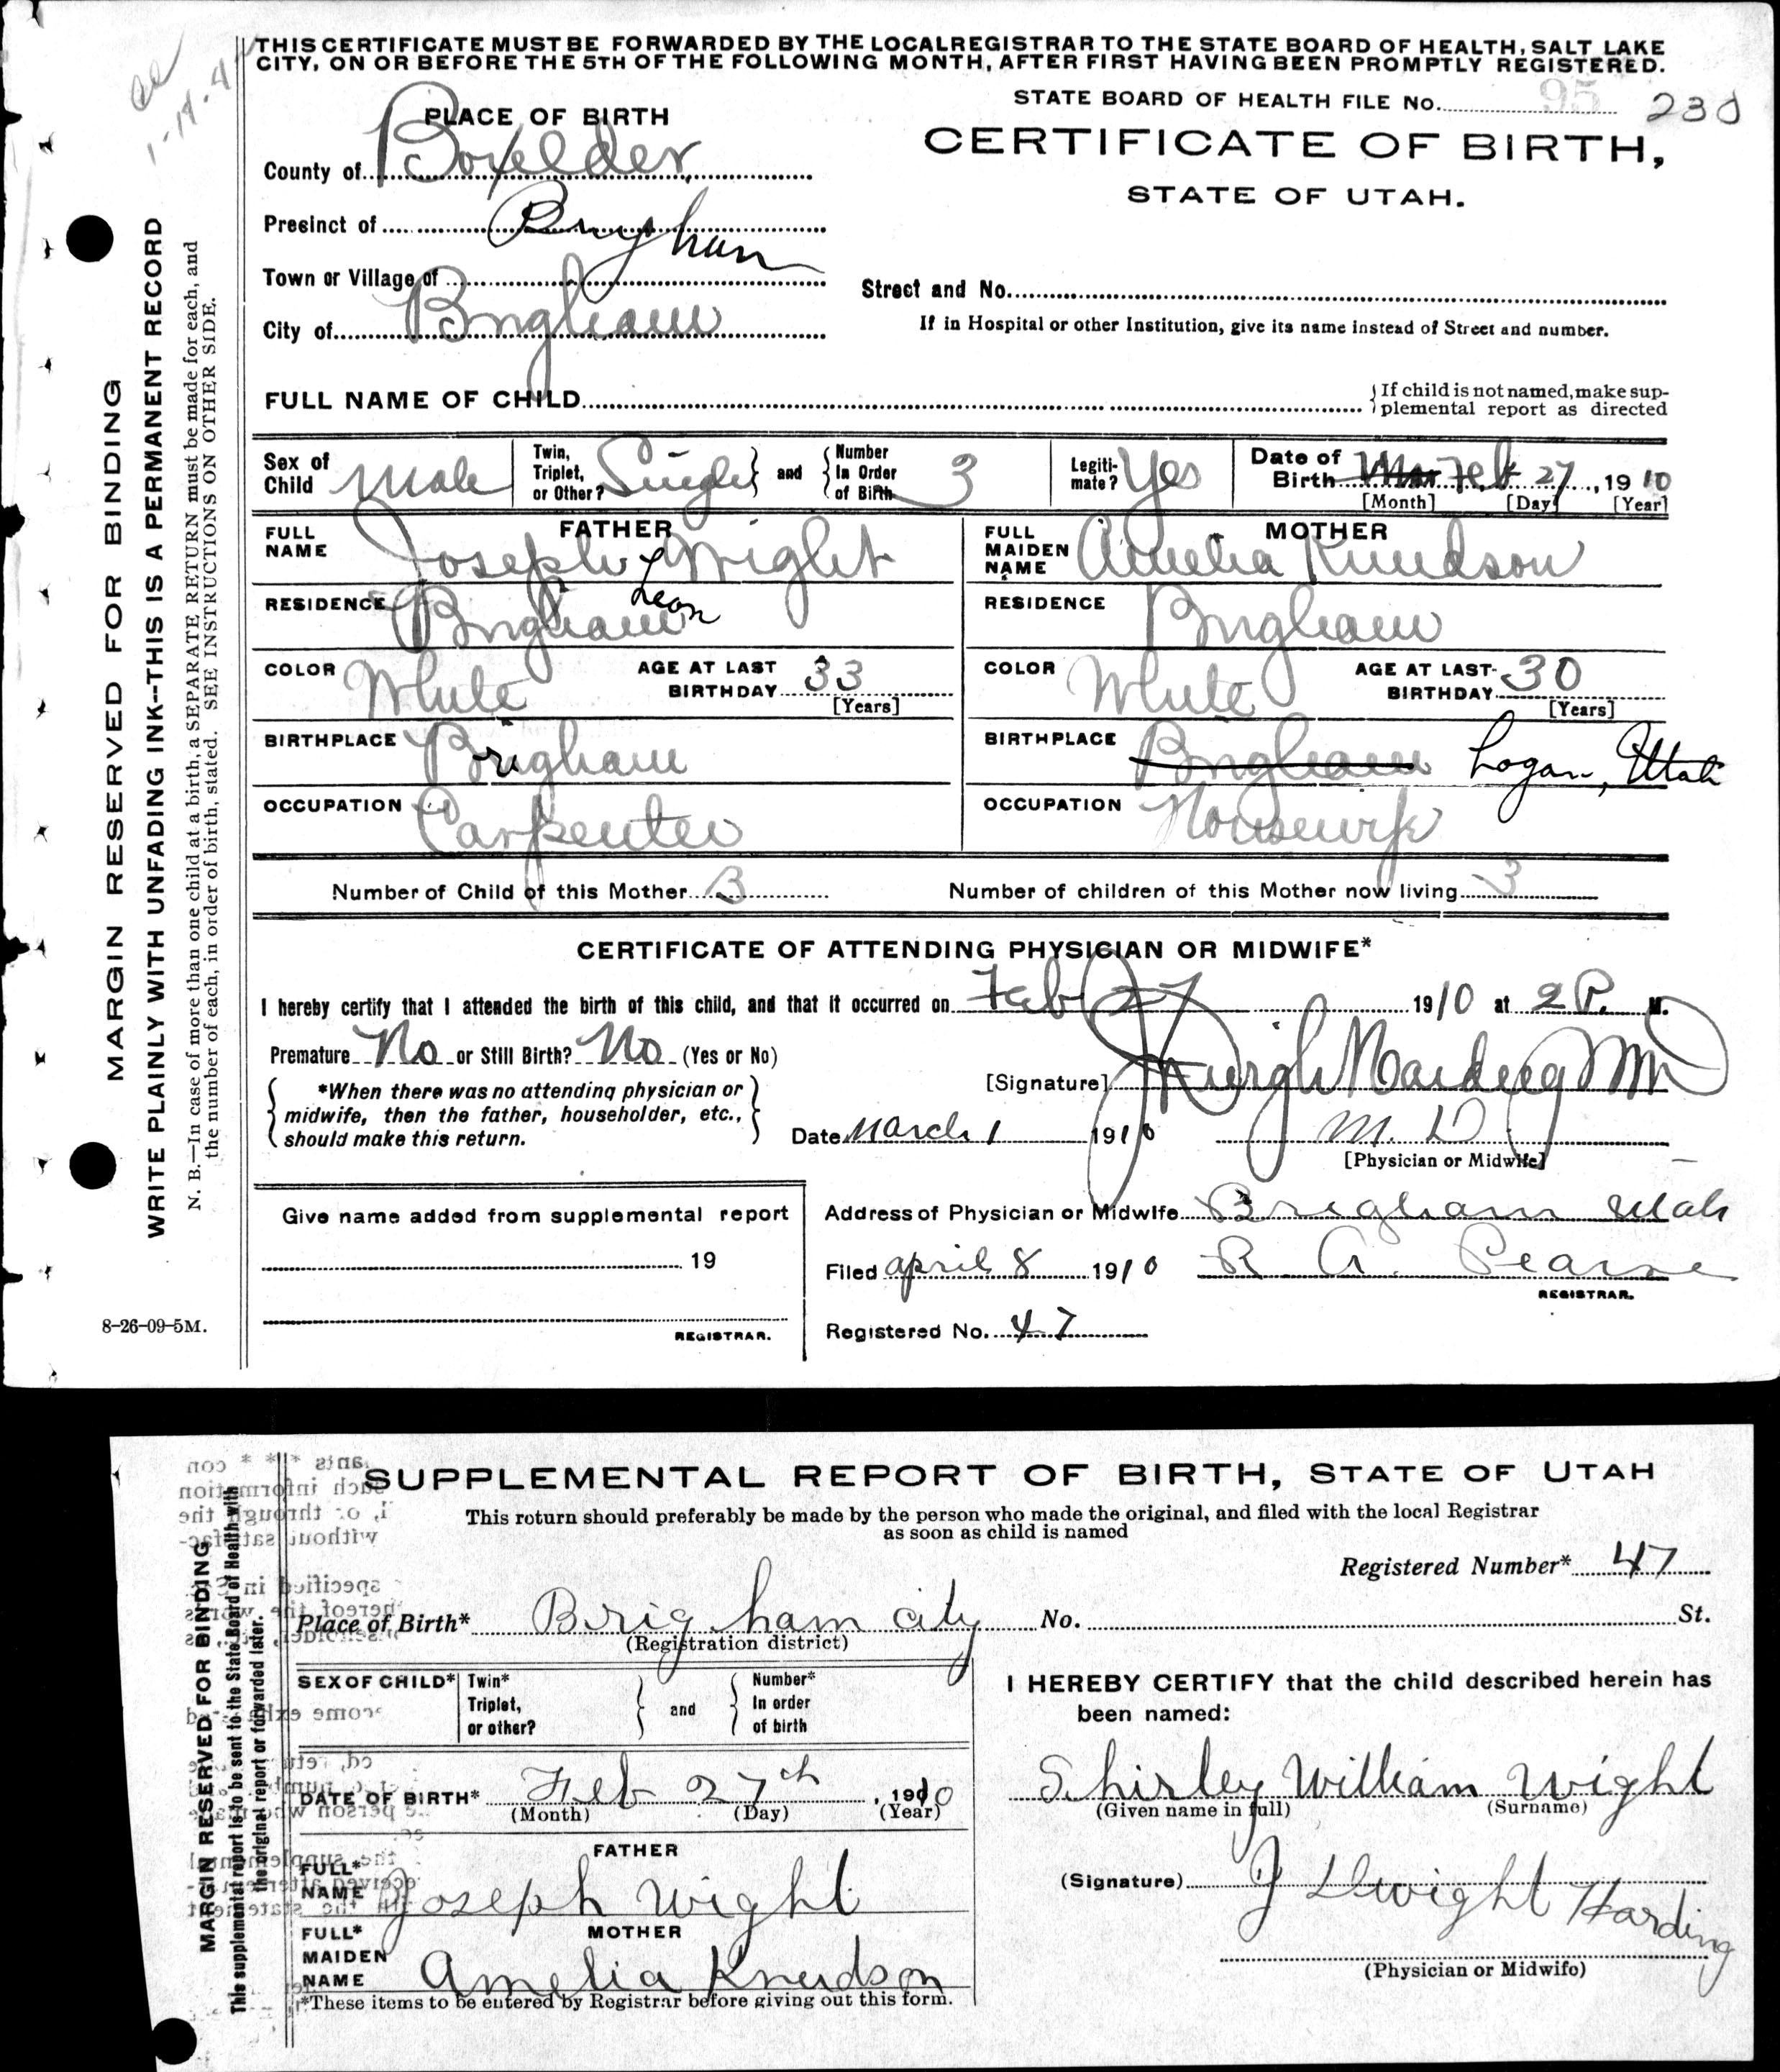 THIS CERTIFICATE MUST BE FORWARDED BY THE LOCAL REGISTRAR TO THE STATE BOARD OF HEALTH, SALT LAKE
CITY, ON OR BEFORE THE 5TH OF THE FOLLOWING MONTH, AFTER FIRST HAVING BEEN PROMPTLY REGISTERED.
STATE BOARD OF HEALTH FILE No. 95 230
PLACE OF BIRTH
CERTIFICATE OF BIRTH,
STATE OF UTAH.
County of Boxelder
Presinct of Brigham
Town or Village of
Street and No.
City of Brigham
If in Hospital or other Institution, give its name instead of Street and number.
FULL NAME OF CHILD
If child is not named, make sup-
plemental report as directed
Sex of Child Male
Twin, Triplet, or Other? Single and Number In Order of Birth 3
Legiti-mate? Yes
Date of Birth Mar Feb 27, 1910
[Month] [Day] [Year]
FATHER
FULL NAME Joseph Leon Wight
RESIDENCE Brigham
COLOR White AGE AT LAST BIRTHDAY 33
[Years]
BIRTHPLACE Brigham
OCCUPATION Carpenter
MOTHER
FULL MAIDEN NAME Amelia Knudson
RESIDENCE Brigham
COLOR White AGE AT LAST BIRTHDAY 30
[Years]
BIRTHPLACE Brigham Logan, Utah
OCCUPATION Housewife
Number of Child of this Mother 3 Number of children of this Mother now living 3
CERTIFICATE OF ATTENDING PHYSICIAN OR MIDWIFE*
I hereby certify that I attended the birth of this child, and that it occurred on Feb 27 1910 at 2 P. M.
Premature No or Still Birth? No (Yes or No)
*When there was no attending physician or
midwife, then the father, householder, etc.,
should make this return.
[Signature] J Dwight Harding MD
Date March 1 1910 M. D
[Physician or Midwife]
Give name added from supplemental report
19
REGISTRAR.
Address of Physician or Midwife Brigham Utah
Filed April 8 1910 R A. Pearse
REGISTRAR.
Registered No. 47
MARGIN RESERVED FOR BINDING
WRITE PLAINLY WITH UNFADING INK--THIS IS A PERMANENT RECORD
N. B.—In case of more than one child at a birth, a SEPARATE RETURN must be made for each, and
the number of each, in order of birth, stated. SEE INSTRUCTIONS ON OTHER SIDE.
8-26-09-5M.
SUPPLEMENTAL REPORT OF BIRTH, STATE OF UTAH
This return should preferably be made by the person who made the original, and filed with the local Registrar
as soon as child is named
Registered Number* 47
Place of Birth* Brigham City No. St.
(Registration district)
SEX OF CHILD*
Twin* Triplet, or other? and Number* In order of birth
DATE OF BIRTH* Feb 27th, 1910
(Month) (Day) (Year)
FATHER
FULL* NAME Joseph Wight
MOTHER
FULL* MAIDEN NAME Amelia Knudson
*These items to be entered by Registrar before giving out this form.
I HEREBY CERTIFY that the child described herein has
been named:
Shirley William Wight
(Given name in full) (Surname)
(Signature) J Dwight Harding
(Physician or Midwife)
MARGIN RESERVED FOR BINDING
This supplemental report is to be sent to the State Board of Health with
the original report or forwarded later.